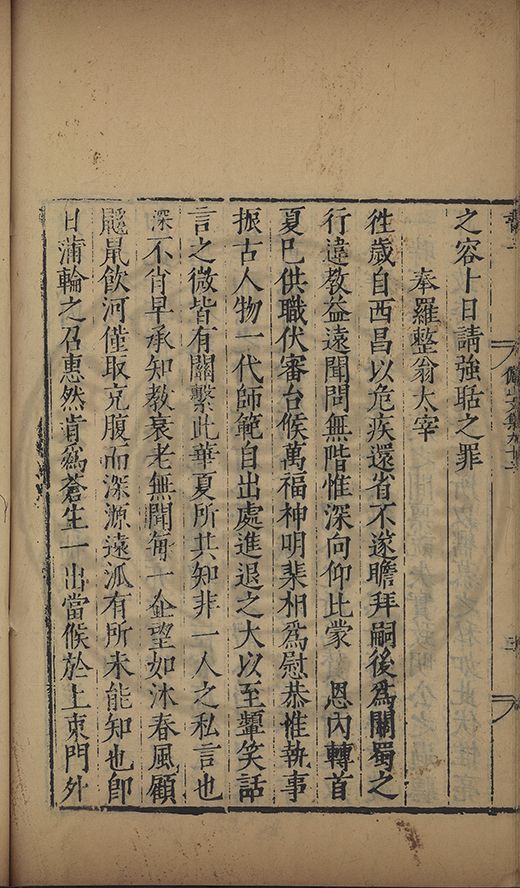 之容卜日請強聒之罪
奉羅整翁太宰
徃歲自西昌以危疾還省不遂瞻拜嗣後爲關蜀之
行違教益遠聞問無階惟深向仰比蒙 恩內轉首
夏已供職伏審台候萬福神明棐相爲慰恭惟執事
振古人物一代師範自出處進退之大以至顰笑話
言之微皆有關繫此華夏所共知非一人之私言也
深不肖早承知教衰老無聞每一企望如沐春風顧
鼴鼠飲河僅取充腹而深源遠泒有所未能知也卽
日蒲輪之召惠然肯爲蒼生一出當候於上東門外